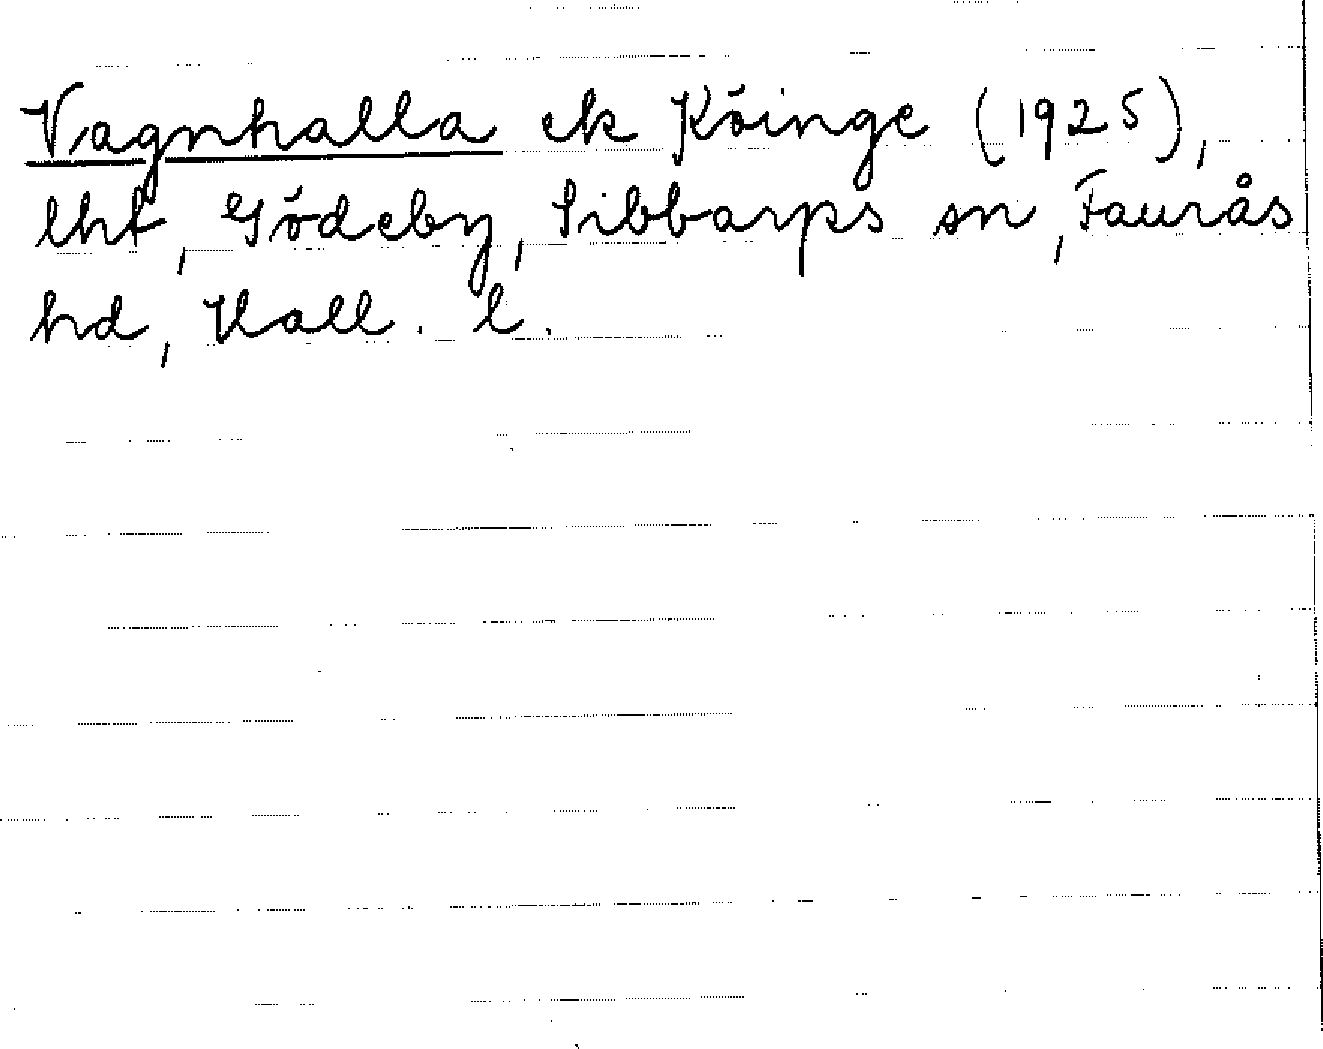 Vagnhalla ek Köinge (1925),
lht, Gödeby, Sibbarps sn, Faurås
hd, Hall. l.